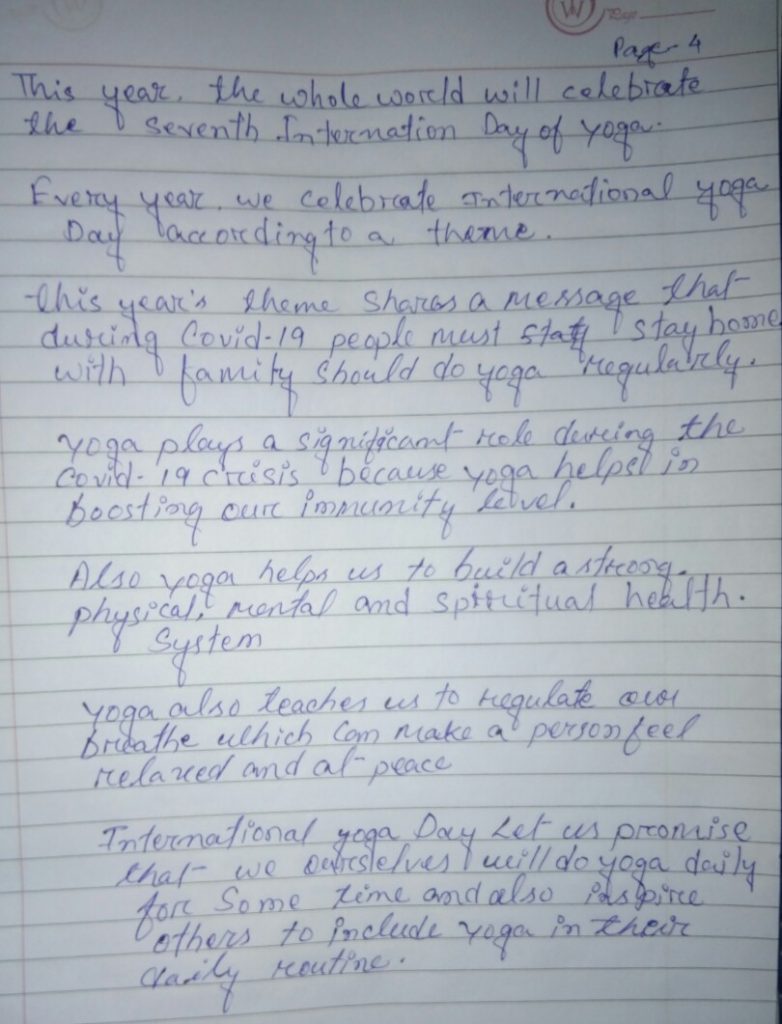 W
Page
Page-4
This year, the whole world will celebrate
the seventh Internation Day of yoga.
Every year, we celebrate International yoga
Day according to a theme.
this year's theme shares a message that
during Covid-19 people must stay stay home
with family should do yoga regularly.
yoga plays a significant role during the
Covid-19 crisis because yoga helps in
boosting our immunity level.
Also yoga helps us to build a strong.
physical, mental and spiritual health.
System
yoga also teaches us to regulate our
breathe which can make a person feel
relaxed and at peace
International yoga Day Let us promise
that we ourselves will do yoga daily
for Some time and also inspire
others to include yoga in their
daily routine.